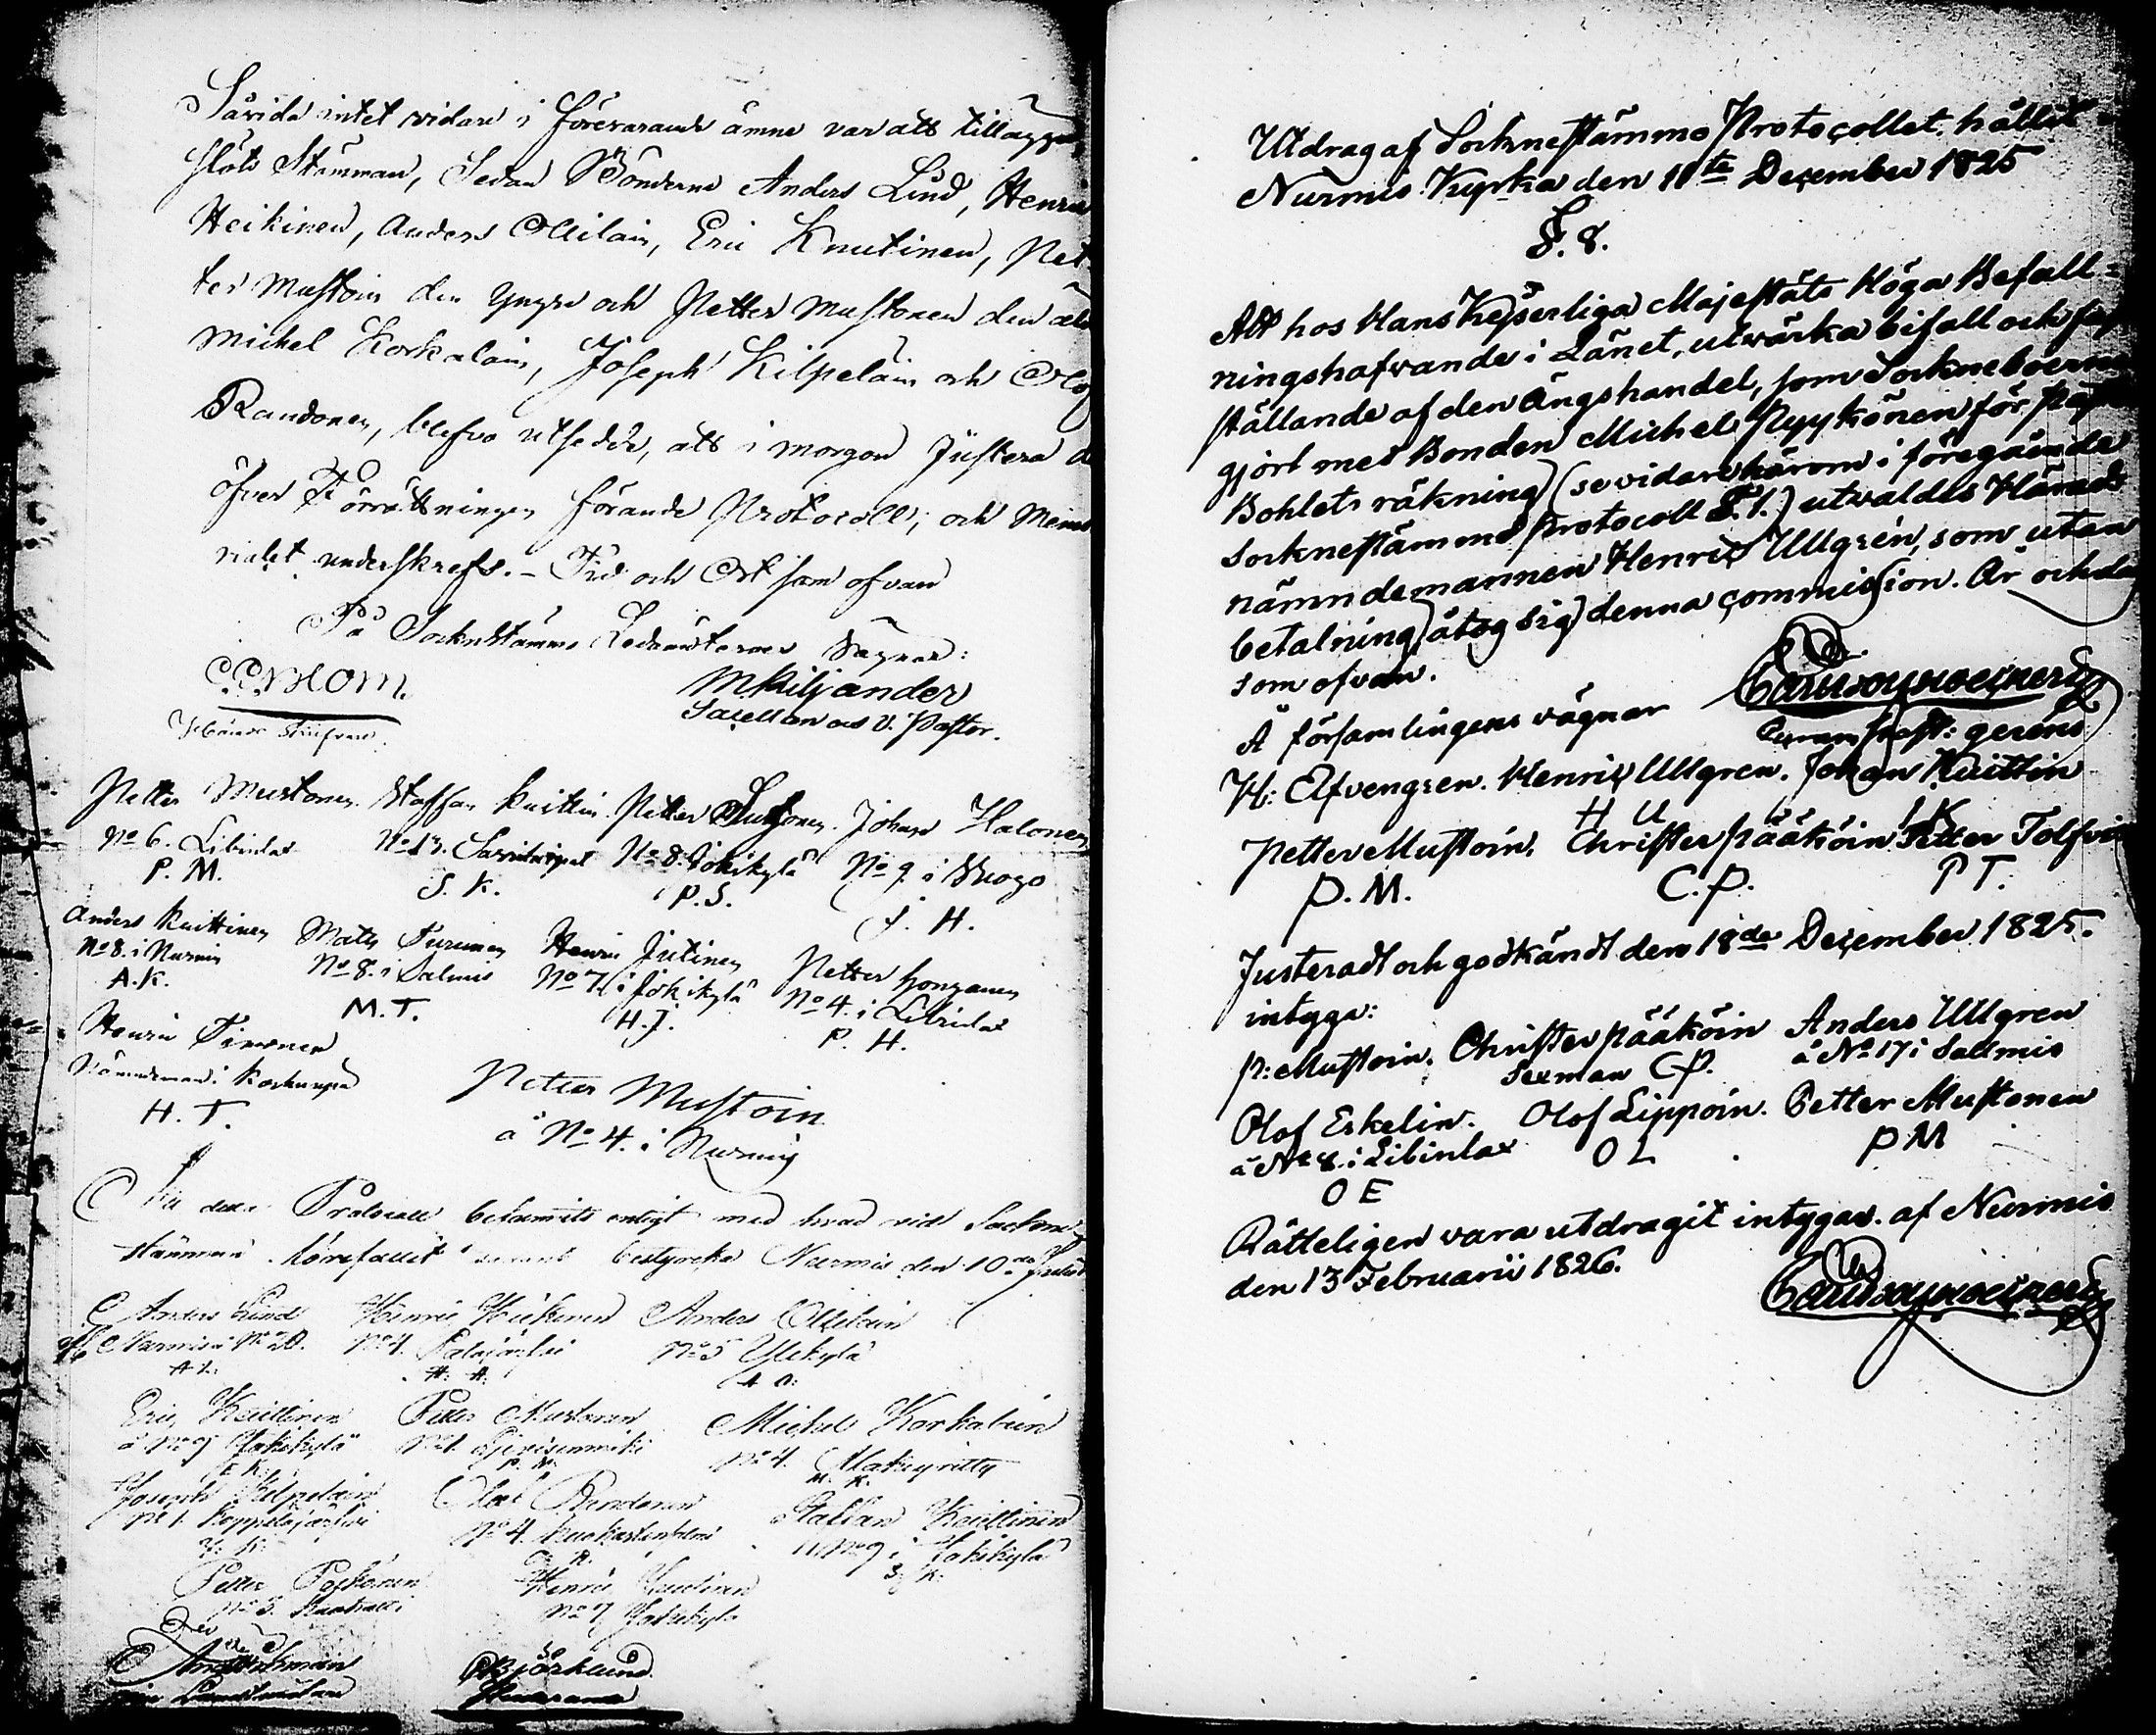 Såvida intet vidare i förevarande ämne var att tillägga,
slöts Stämman, Sedan Bönderne Anders Lind, Henric
Heikinen, Anders Ollilain, Eric Knutinen, Pet-
ter Mustoin den yngre och Petter Mustonen den äld
Michel Korkalain, Joseph Kilpeläin och Olof
Randonen, blefvo utsedde, att i morgon Justera d
öfver Förrättningen förande Protocoll, och Memo
rialet underskrefs. - Tid och Ort som ofvan
På Socknestämmo Ledamöternes vägnar:
M Kiljander
Sacellan och V. Pastor.
Petter Mustonen. Staffan Kuittin. Petter Johan Halonen
No 6. Libinlax No 13. No 8. Jokikylä No 9 i Wuogo
P. M. S. K. P. S. J. H.
Anders Kuittinen Matts Turunen Henric Jutinen Petter Honganen
No 8. i Nurmis No 8. i Salmis No 7 i Jokikylä No 4. i Libinlax
A. K. M. T. H. J. P. H.
Henric Timonen
Nämndeman i
H. T.
Petter Mustoin
å No 4. i Nurmis
Protocoll befunnits enligt med hvad vid Sockne
stämman förefallit bestyrcka Nurmis den 10de
Anders Lind Henric Heikinen Anders Ollilain
Nurmis No 20. No 4. No 5 Ylikylä
A L. H. H. A O.
Eric Kuittinen Petter Mustonen Michel Korkalain
å No 9 Jokikylä No 1. No 4.
E K. P. M. M. K.
Joseph Kilpeläin Olof Randonen Staffan Kuittinen
No 1. No 4. No 9 i Jokikylä
J. K. O. R. S. K.
Petter Henric
No 5. No 7 Jokikylä
Björklund
Utdrag af Sockneståmmo Protocollet, hållit i
Nurmis Kyrka den 11te December 1825
§. 8.
Att hos Hans Kejserliga Majestäts Höga Befall=
ningshafvande i Länet, utvärka bifall och fast
ställande af den Ängshandel, som Sockneboerna
gjort med Bonden Michel Pyykönen för
Bohlets räkning (se vidare härom i föregående
Socknestämmo Protocoll §. 1.) utvaldes Härads
nämndemannen Henric Ullgrén, som utan
betalning åtog sig denna commission. År och dag
som ofvan.
Å församlingens vägnar
H: Elfvengren. Henric Ullgren. Johan Kuittin
H U I K
Petter Mustoin. Christer Pääköin Petter Tolfvin
P. M. C. P. P T.
Justeradt och godkändt den 18de December 1825.
intyga:
P: Mustoin. Christer Pääköin Anders Ullgren
Sexman C P. å No 17 i Sallmis
Olof Eskelin. Olof Lippoin. Petter Mustonen
å No 8. i Libinlax O L P M
O E
Rätteligen vara utdragit intygas. af Nurmis
den 13 Februarii 1826.